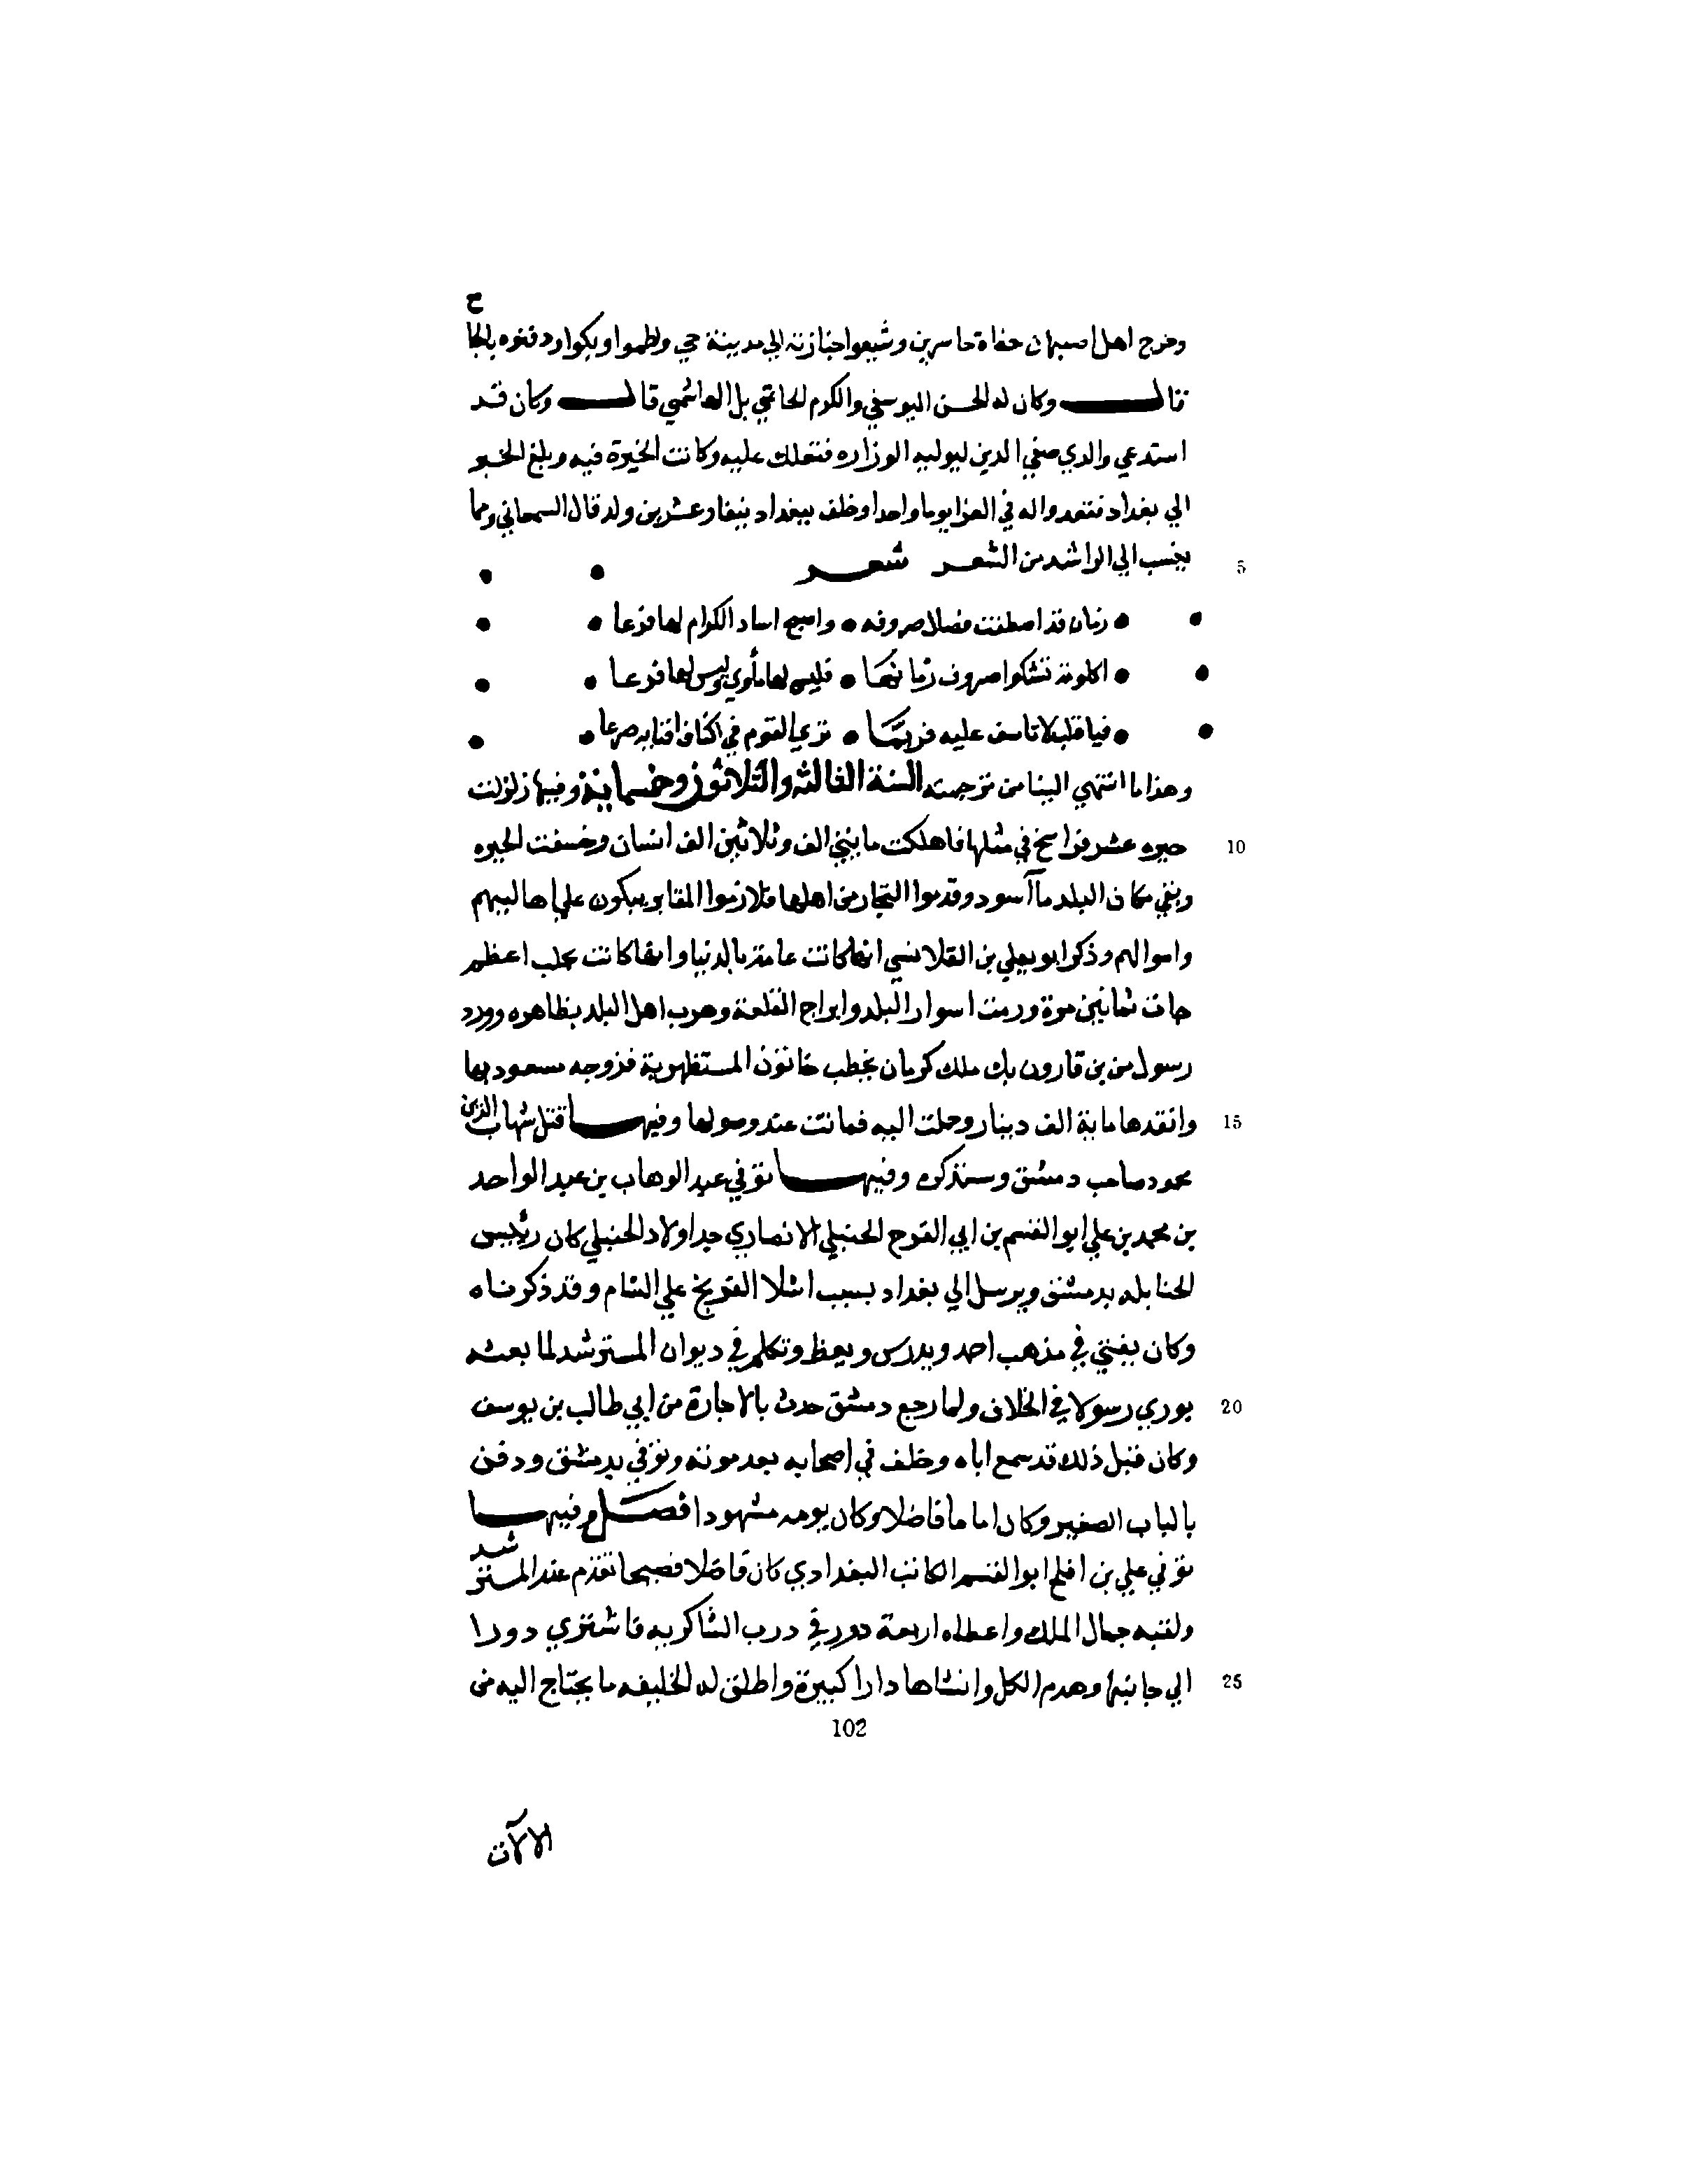 وخرج اهل اصبهان حفاة حاسرين وشيعوا جنازته الي مدينة جي ولطموا وبكوا ودفنوه بالجا
ع
قال وكان له الحسن اليوسفي والكرم الحاتمي بل الهاشمي قال وكان قد
استدعي والدي صفي الدين ليوليه الوزاره فتعلل عليه وكانت الخيرة فيه وبلغ الخبر
الي بغداد فقعدوا له في العزا يوما واحدا وخلف ببغداد نيفا وعشرين ولد قال السمعاني ومما
5 ينسب الي الراشد من الشعر شعر
زمان قد اصطفت فضلا صروفه • واصبح اساد الكرام لها قرعا
اكلومة تشكوا صروف زمانها • فليس لها مأوي وليس لها
فيا قلب لا تاسف عليه فربما • تري القوم في اكناف افنايه صرعا
وهذا ما انتهي الينا من ترجمته السنة الثالثه والثلاثون وخمسماية وفيها زلزلت
10 حيره عشر فراسخ في مثلها فاهلكت مايتي الف وثلاثين الف انسان وخسفت الحيره
وبقي مكان البلد مآ أسود وقدموا التجار من اهلها فلازموا المقابر يبكون علي اهاليهم
واموالهم وذكر ابو يعلي بن القلانسي انها كانت عامة بالدنيا وانها كانت بحلب اعظم
جات ثمانين مرة ورمت اسوار البلد وابراج القلعة وهرب اهل البلد بظاهره وورد
رسول من بن قارون بك ملك كرمان يخطب خاتون المستظهرية فزوجه مسعود بها
15 وانقدها ماية الف دينار وحملت اليه فماتت عند وصولها وفيها قتل شهاب الدين
محمود صاحب دمشق وسنذكره وفيها توفي عبد الوهاب بن عبد الواحد
بن محمد بن علي ابو القسم بن ابي الفرج الحنبلي الانصاري جد اولاد الحنبلي كان رئيس
الحنابله بدمشق ويرسل الي بغداد بسبب استلا الفرنج علي الشام وقد ذكرناه
وكان يفتي في مذهب احمد ويدرس ويعظ وتكلم في ديوان المسترشد لما بعثه
20 بوري رسولا في الخلاف ولما رجع دمشق حدث بالاجازة من ابي طالب بن يوسف
وكان قبل ذلك قد سمع اباه وخلف في اصحابه بعد موته وتوفي بدمشق ودفن
بالباب الصغير وكان اماما فاضلا وكان يومه مشهودا فصل وفيها
توفي علي بن افلح ابو القسم الكاتب البغدادي كان فاضلا فصيحا تقدم عند المستر
شد
ولقبه جمال الملك واعطاه اربعة دور في درب الشاكريه فاشتري دورا
25 الي جانبها وهدم الكل وانشاها دارا كبيرة واطلق له الخليفه ما يحتاج اليه من
102
الالآت